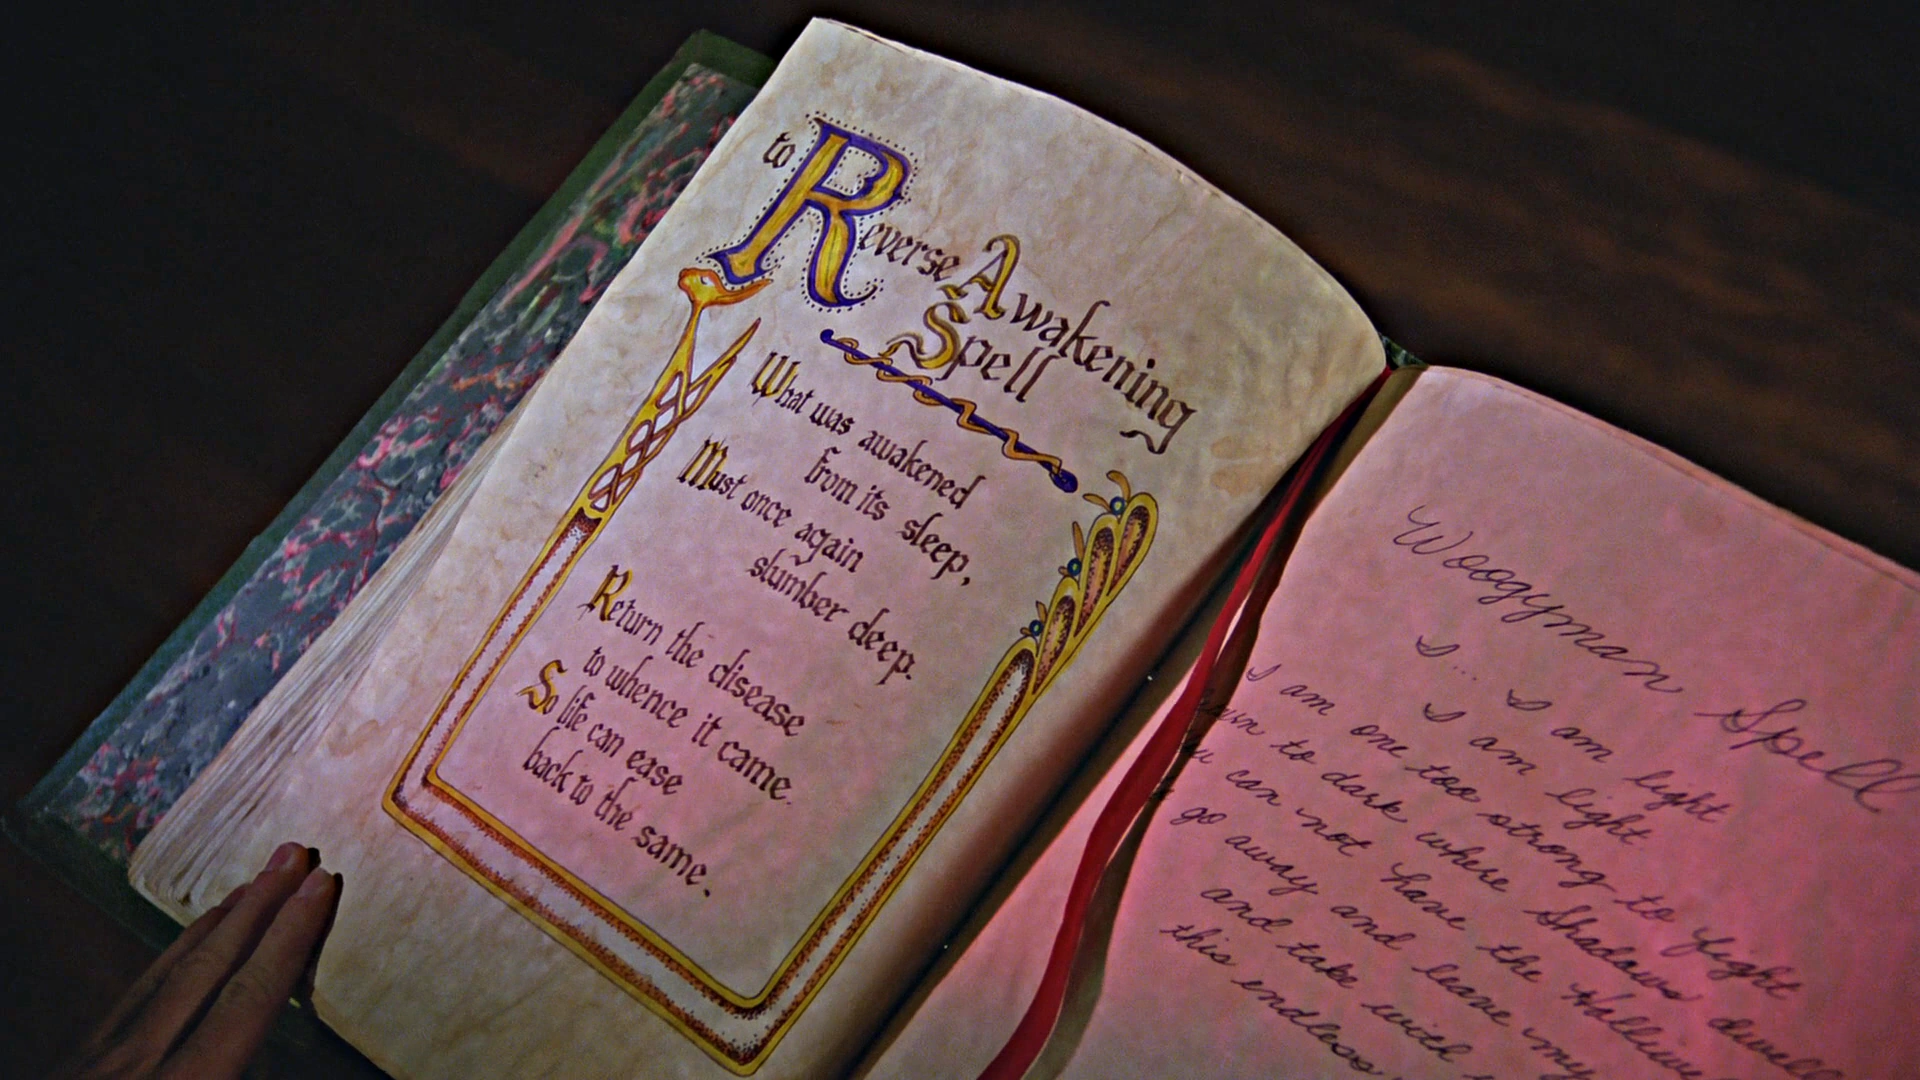 to Reverse Awakening
Spell
What was awakened
from its sleep,
Must once again
slumber deep.
Return the disease
to whence it came.
So life can ease
back to the same.
Woogyman Spell
I... I am light
I am light
I am one too strong to fight
to dark where Shadows dwell
can not have the Halliwell
go away and leave my
and take with
this endless